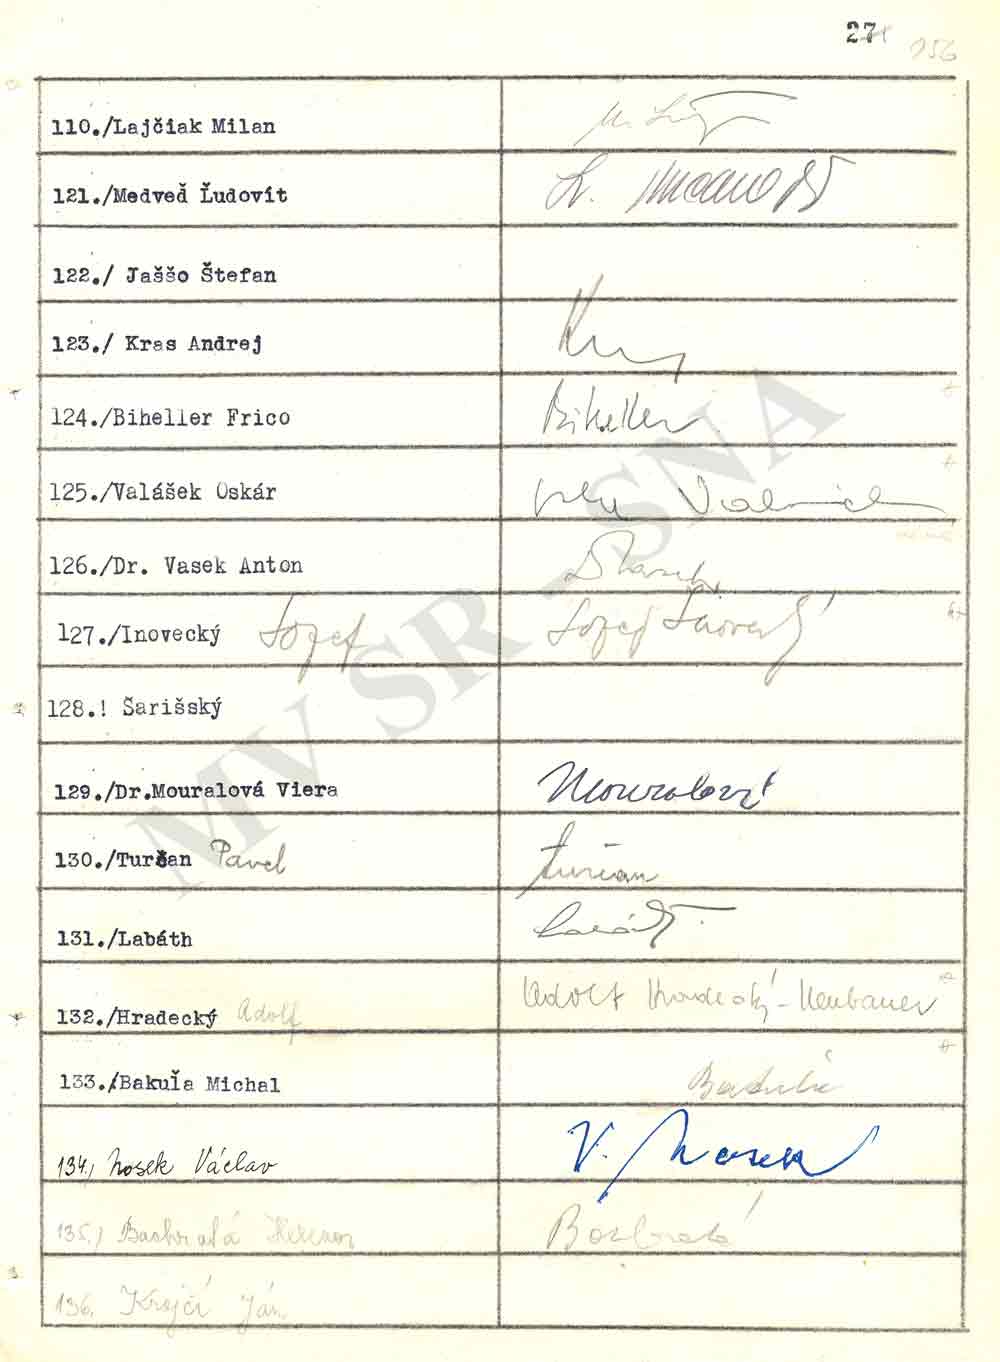 27
156
110./Lajčiak Milan
121./Medveď Ľudovít
122./ Jaššo Štefan
123./ Kras Andrej
124./Biheller Frico Biheller
125./Valášek Oskár
126./Dr. Vasek Anton
127./Inovecký Jozef Jozef Inovecký
128.! Šarišský
129./Dr.Mouralová Viera Mouralová
130./Turčan Pavel Turčan
131./Labáth Labáth
132./Hradecký Adolf Adolf Hradecký-Neubauer
133./Bakuľa Michal Bakuľa
134./ Nosek Václav V. Nosek
135./
136. Krejčí Ján
MV SR - SNA